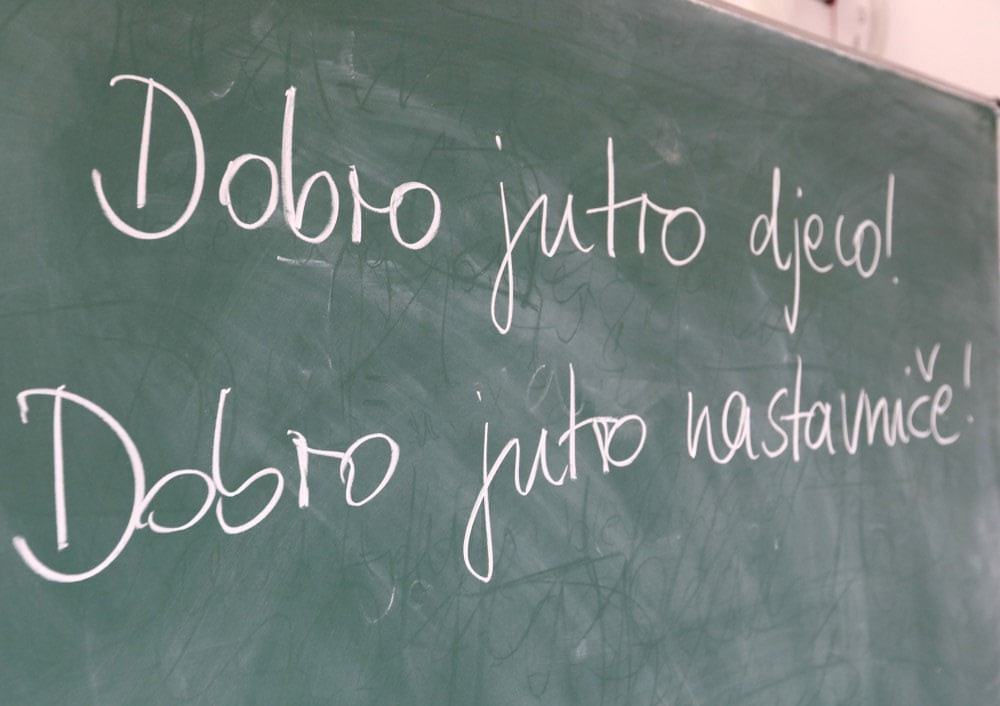 Dobro jutro djeco!
Dobro jutro nastavniče!